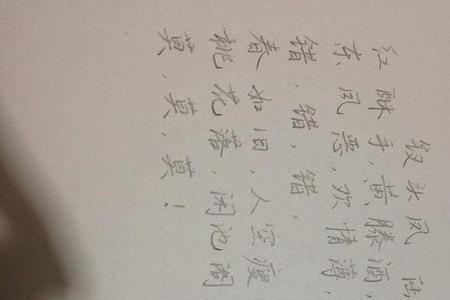 钗头凤 陆
红酥手，黄滕酒，
东风恶，欢情薄，
错，错，错，
春如旧，人空瘦
桃花落，闲池阁
莫，莫，莫！